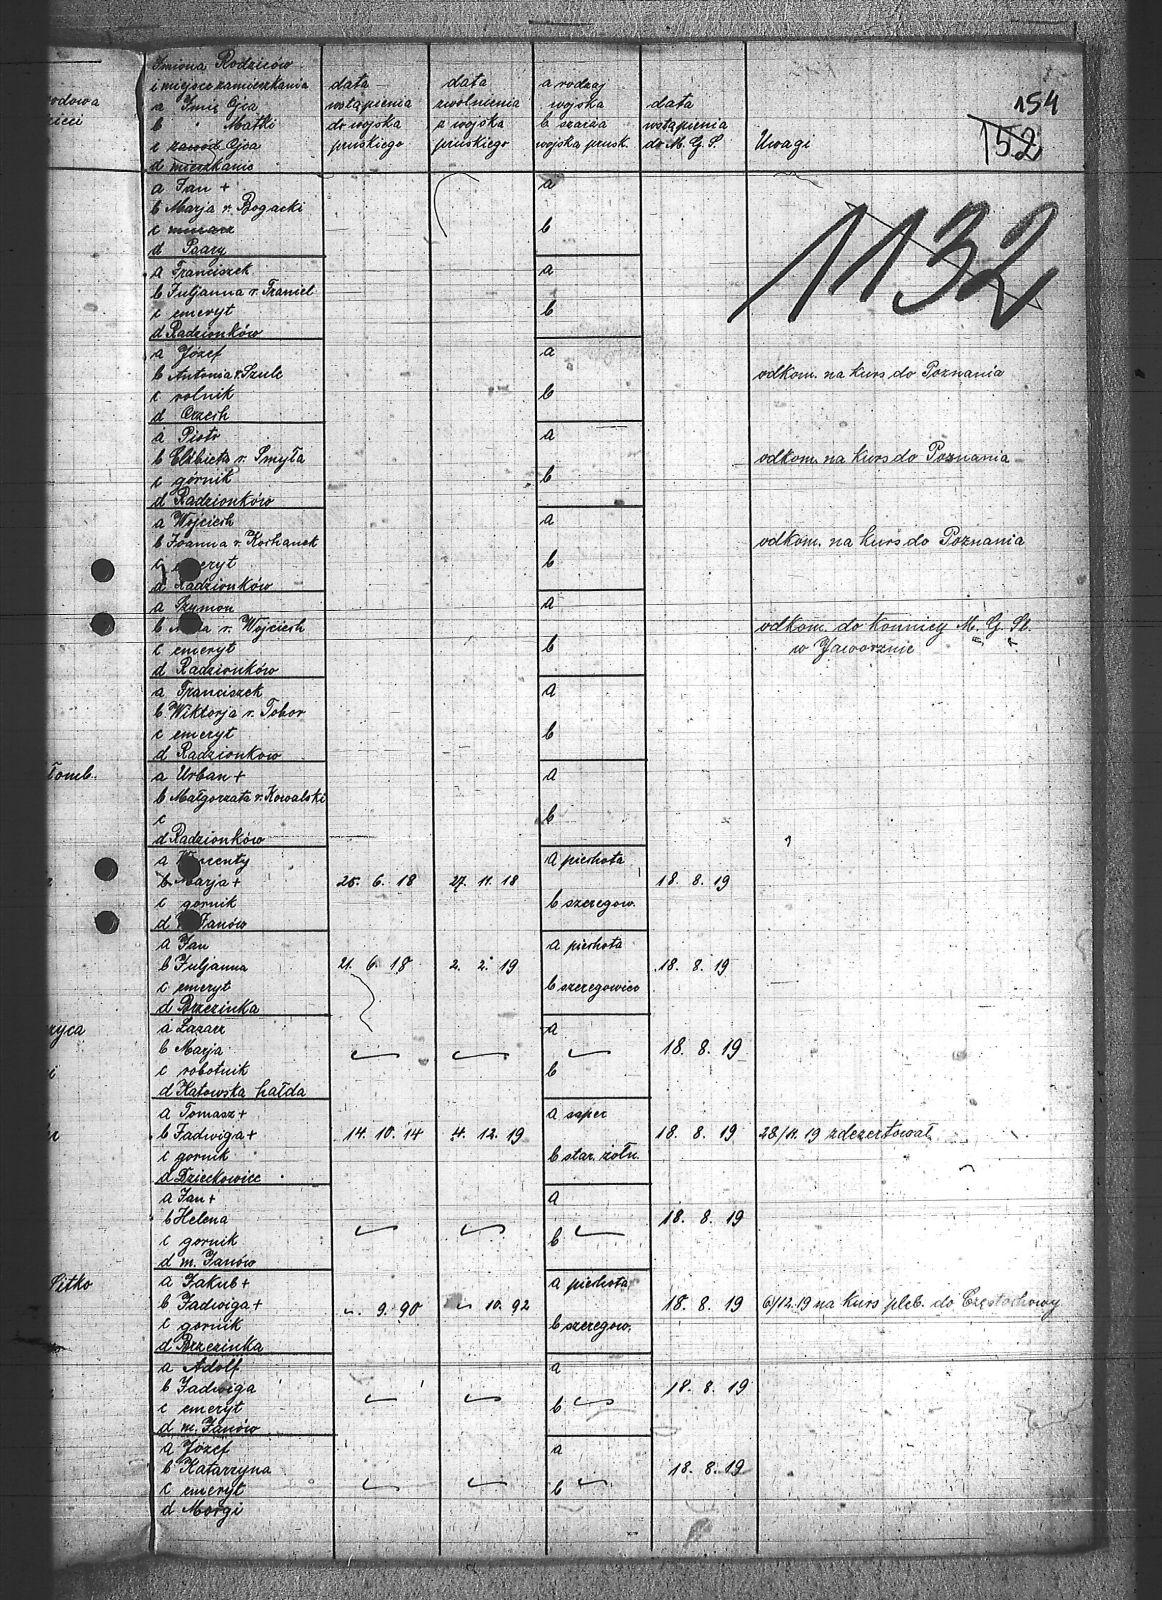 Imiona Rodziców
i miejsce zamieszkania
a Imię Ojca
b " Matki
c zawód Ojca
d mieszkanie
data
wstąpienia
do wojska
pruskiego
data
zwolnienia
z wojska
pruskiego
a rodzaj
wojska
b szarża
wojska prusk.
data
wstąpienia
do M. G. S.
Uwagi
154
152
1132
odowa
a Jan +
b Marja r. Bogacki
c murarz
d
a
b
a Franciszek
b Juljanna r. Franiel
c emeryt
d Radzionków
a
b
a Józef
b Antonia r Szulc
c rolnik
d Orzech
a
b
odkom. na kurs do Poznania
a Piotr
b Elżbieta r. Smyła
c górnik
d Radzionków
a
b
odkom. na kurs do Poznania
a Wojciech
b Joanna r. Kochanek
c emeryt
d Radzionków
a
b
odkom. na kurs do Poznania
a Szymon
b r. Wojciech
c emeryt
d Radzionków
a
b
odkom. do konnicy M. G. Śl.
w Jaworznie
a Franciszek
b Wiktorja r. Tobor
c emeryt
d Radzionkow
a
b
łomb.
a Urban +
b Małgorzata r. Kowalski
c
d Radzionków
a
b
a Wincenty
b Marja +
c gornik
d Janów
25. 6. 18
27. 11. 18
a piechota
b szeregow.
18. 8. 19
a Jan
b Juljanna
c emeryt
d Brzezinka
21. 6. 18
2. 2. 19
a piechota
b szeregowiec
18. 8. 19
zyca
a Łazarz
b Marja
c robotnik
d Katowska hałda
a
b
18. 8. 19
a Tomasz +
b Jadwiga +
c gornik
d Dzieckowice
14. 10. 14
4. 12. 19
a saper
b star. żołn.
18. 8. 19
28/11. 19 zdezertował
a Jan +
b Helena
c gornik
d m. Janów
a
b
18. 8. 19
Pitko
a Jakub +
b Jadwiga +
c gornik
d Brzezinka
9. 90
10. 92
a piechota
b szeregow.
18. 8. 19
6/12. 19 na kurs pleb. do Częstochowy
a Adolf
b Jadwiga
c emeryt
d m. Janów
a
b
18. 8. 19
a Józef
b Katarzyna
c emeryt
d Morgi
a
b
18. 8. 19